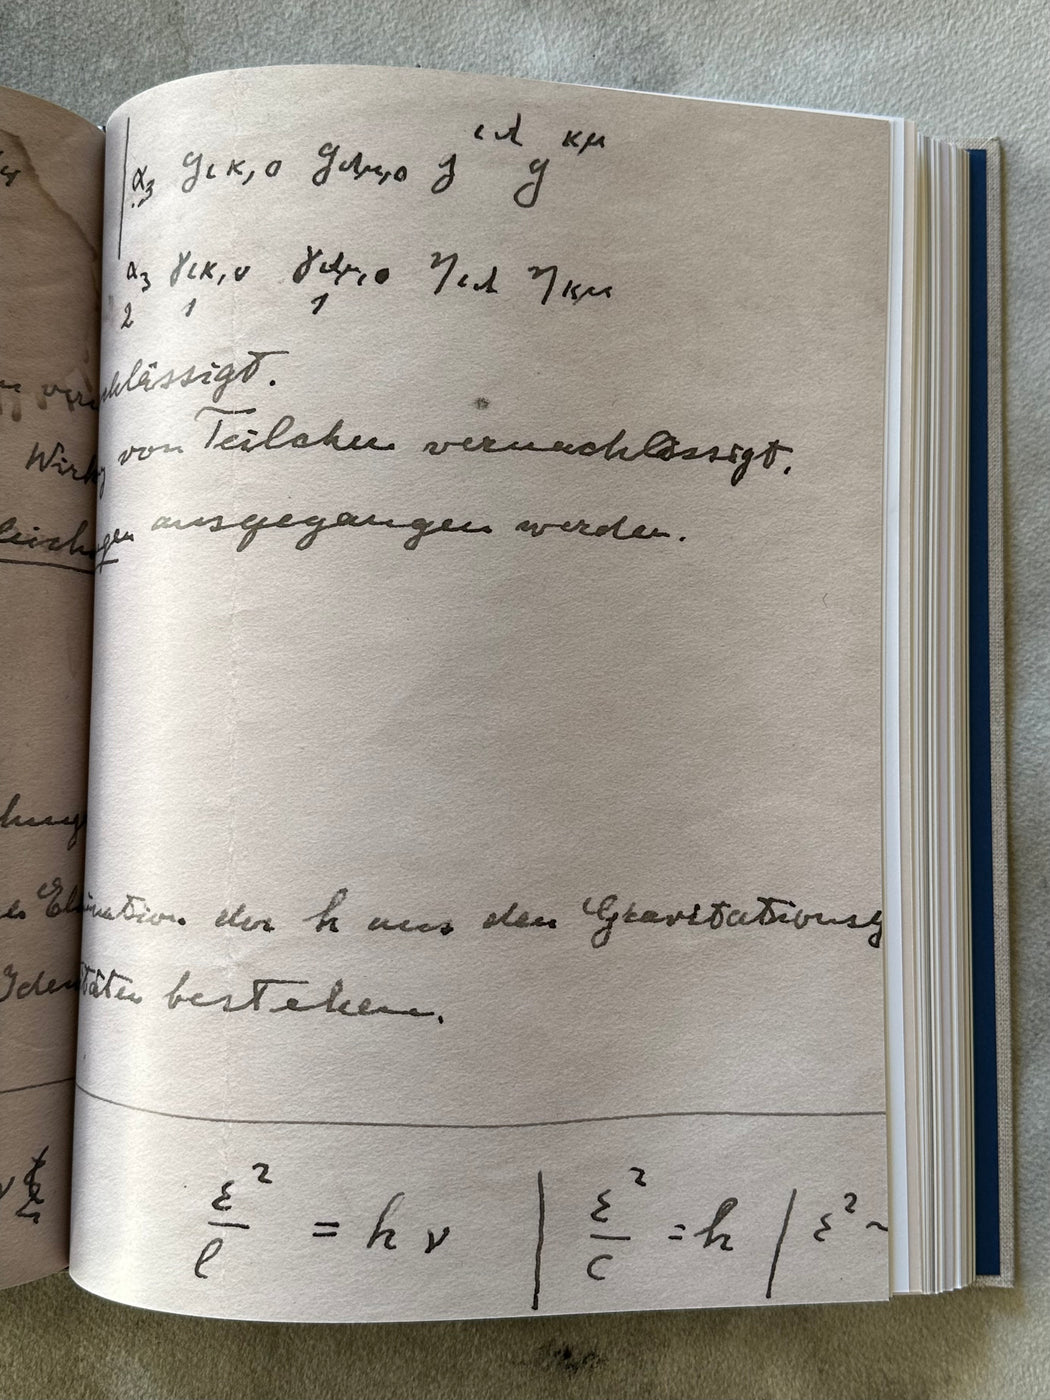 α₃ g_{ικ,0} g_{λμ,0} g^{ιλ} g^{κμ}
α₃ γ_{ικ,0} γ_{λμ,0} η_{ιλ} η_{κμ}
2 1 1
vernachlässigt.
Wirkg von Teilchen vernachlässigt.
ausgegangen werden.
Elimination der h aus den Gravitationsg
Identitäten bestehen.
ε²/l = hν | ε²/c = h | ε² ~